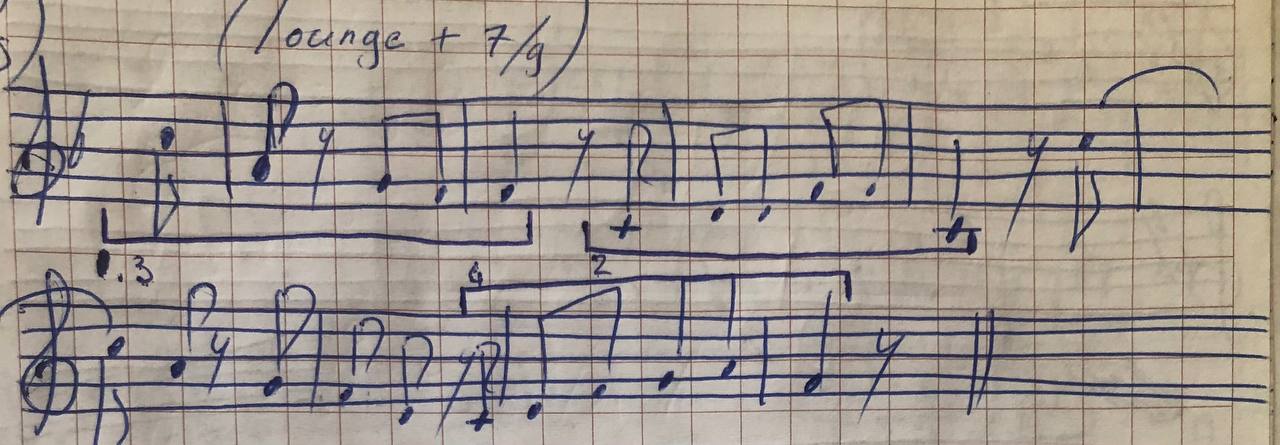 (lounge + 7/9)
.3
2
4